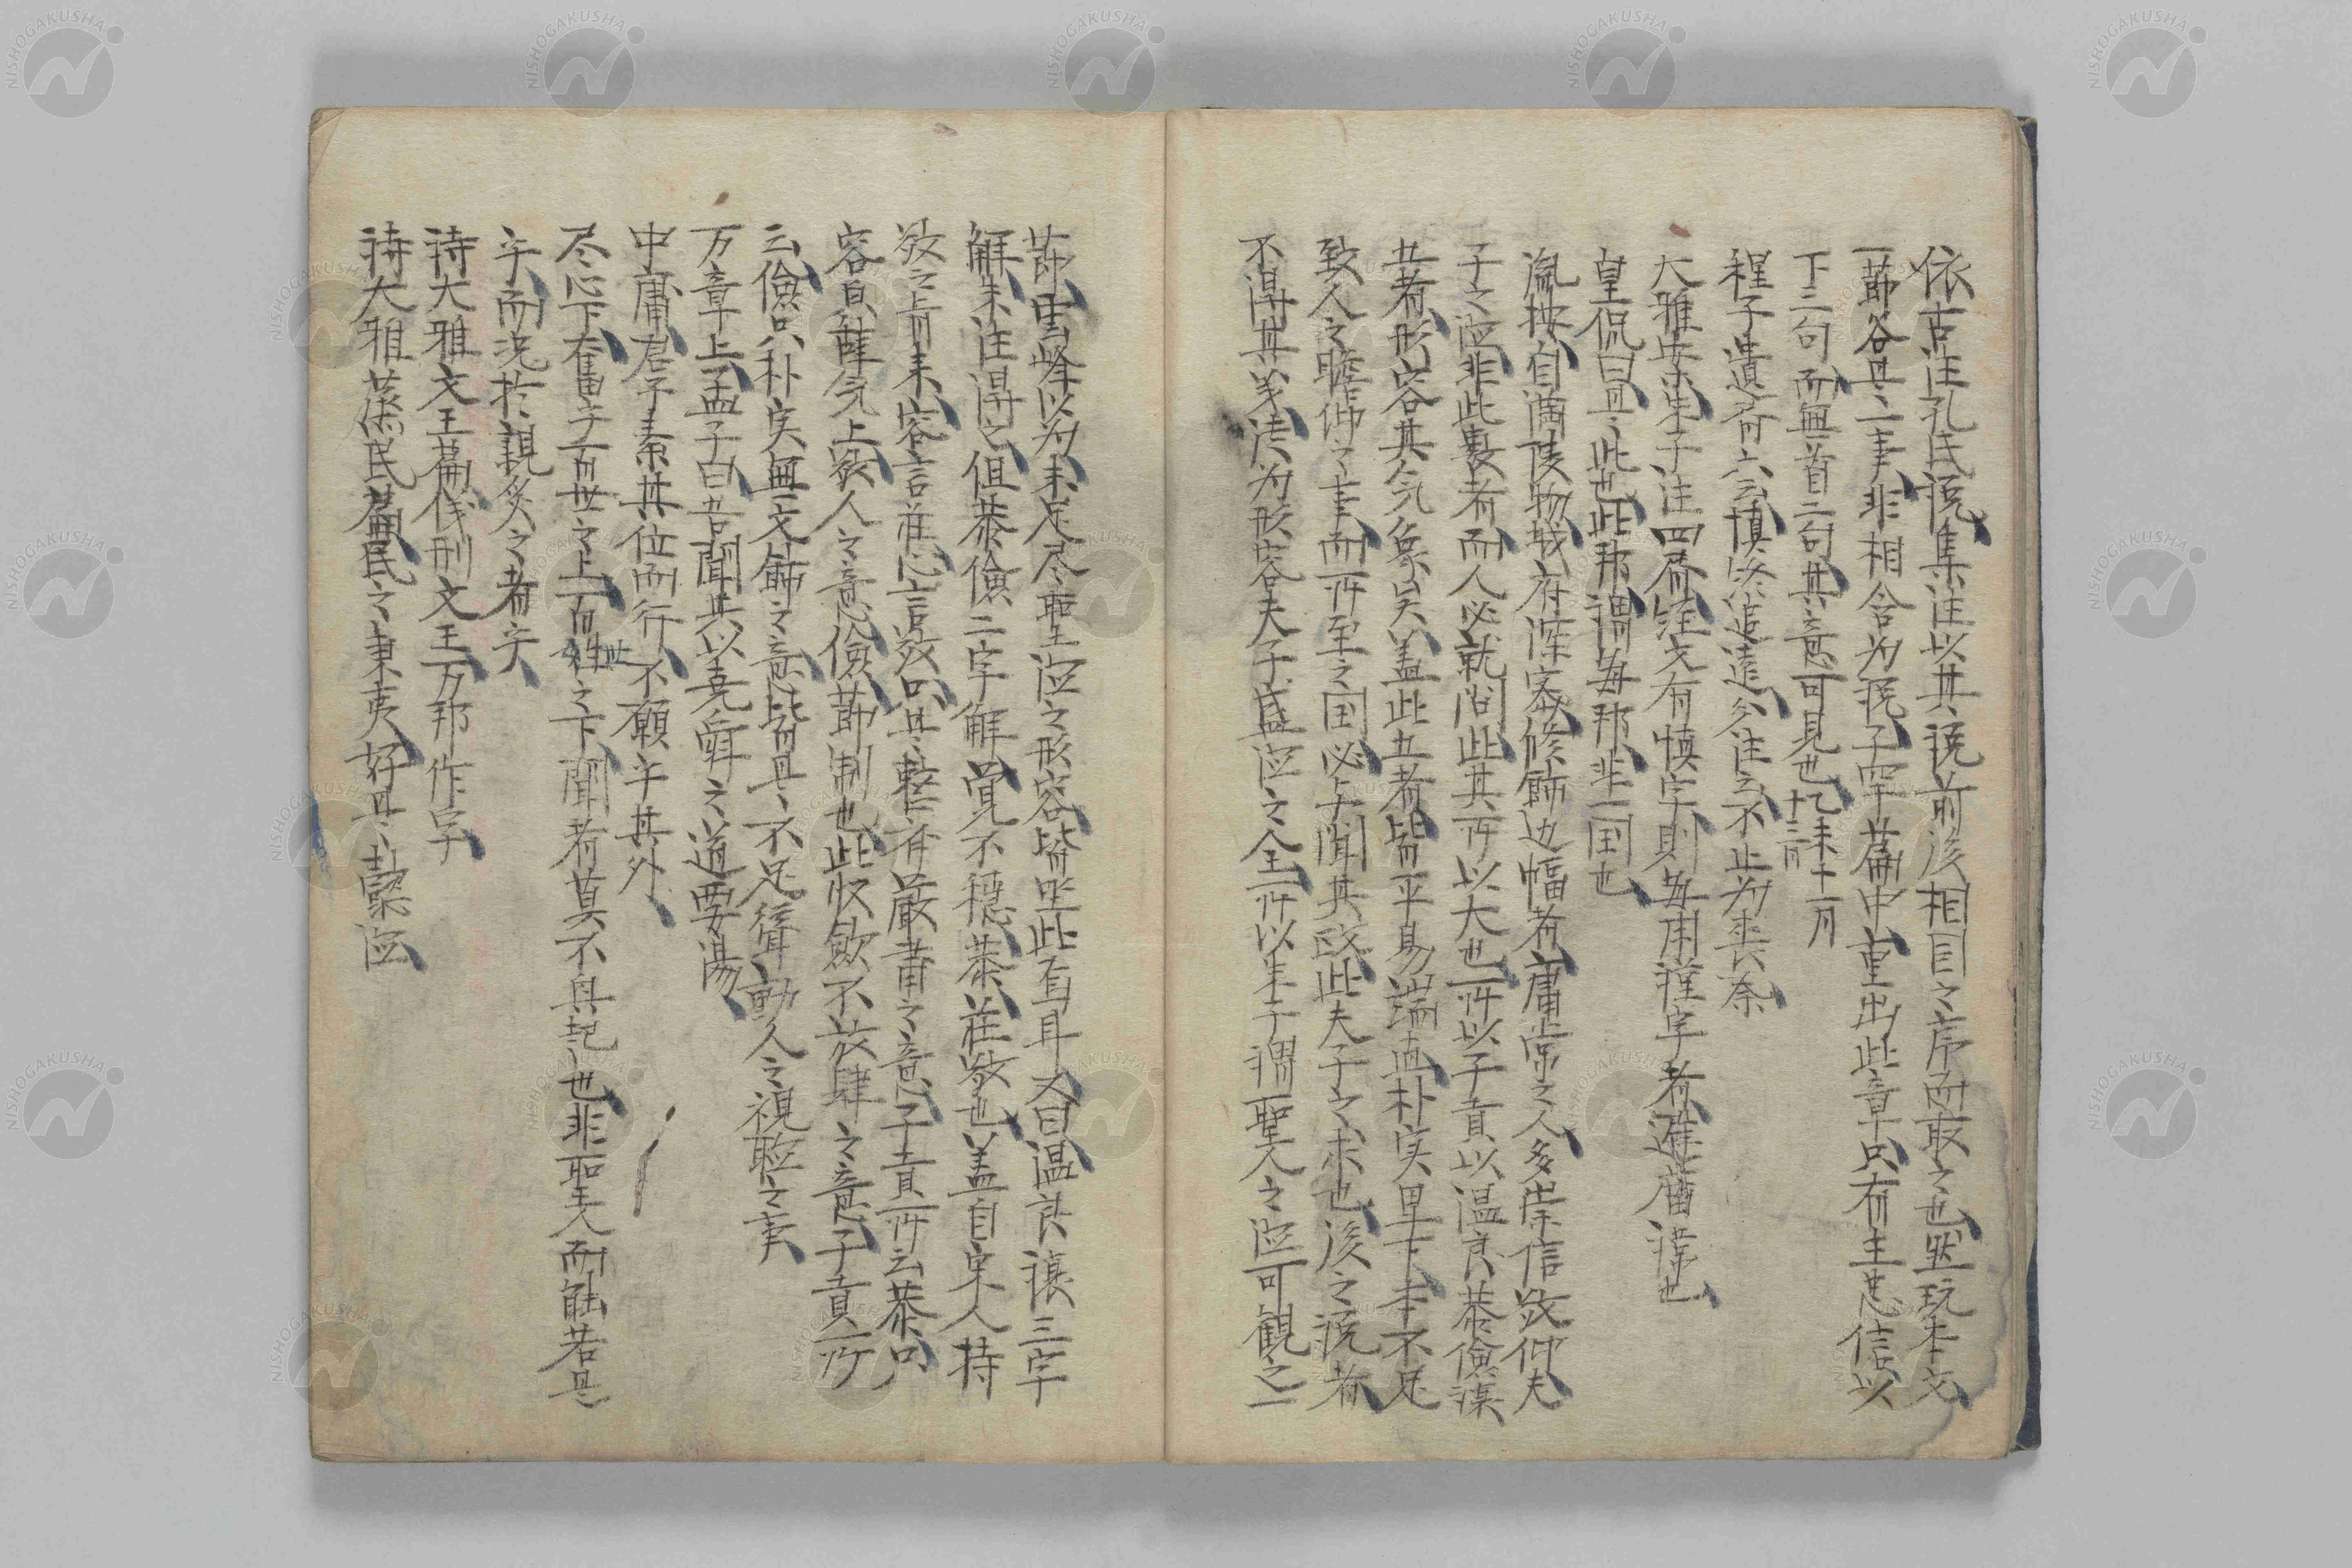 依古注孔氏説集注以其説前後相因之序而取之也然玩本文
一節各是一事非相合為説子罕篇中重出此章只有主忠信以
下三句而無首二句其意可見也乙未十一月十三日
程子遺書六云慎終追遠久注云不止為喪祭
大雅安朱子注四斉経文有慎字則毎用謹字者避庿諱也
皇侃曰是此也此邦謂毎邦非一国也
胤按自満陵物城府深密修飾辺幅者庸常之人多崇信敬仰夫
子之徳非此数者而人必就問此其所以大也所以子貢以温良恭倹譲
五者形容其気象矣蓋此五者皆平易端直朴実卑下本不足
致人之瞻仰之事而所至之国必与聞其政此夫子之求也後之読者
不得其義徒為形容夫子盛徳之全所以朱子謂聖人之徳可観之一
節雲峰以為未足尽聖徳之形容皆坐此而耳又曰温良譲三字
解朱注得之但恭倹二字解覚不穏恭荘敬也蓋自家人持
敬之上有来容言荘心言敬只是整斉厳粛之意子貢所云恭只
容皃辞気上敬人之意倹節制也此收斂不放肆之意子貢所
云倹只朴実無文飾之意皆是不足聳動人之視聴之事
万章上孟子曰吾聞其以堯舜之道要湯
中庸君子素其位而行不願乎其外
尽心下奮乎百世之上百世之下聞者莫不興起也非聖人而能若是
乎而況於親炙之者乎
詩大雅文王篇儀刑文王万邦作孚
詩大雅蒸民篇民之秉夷好是懿徳